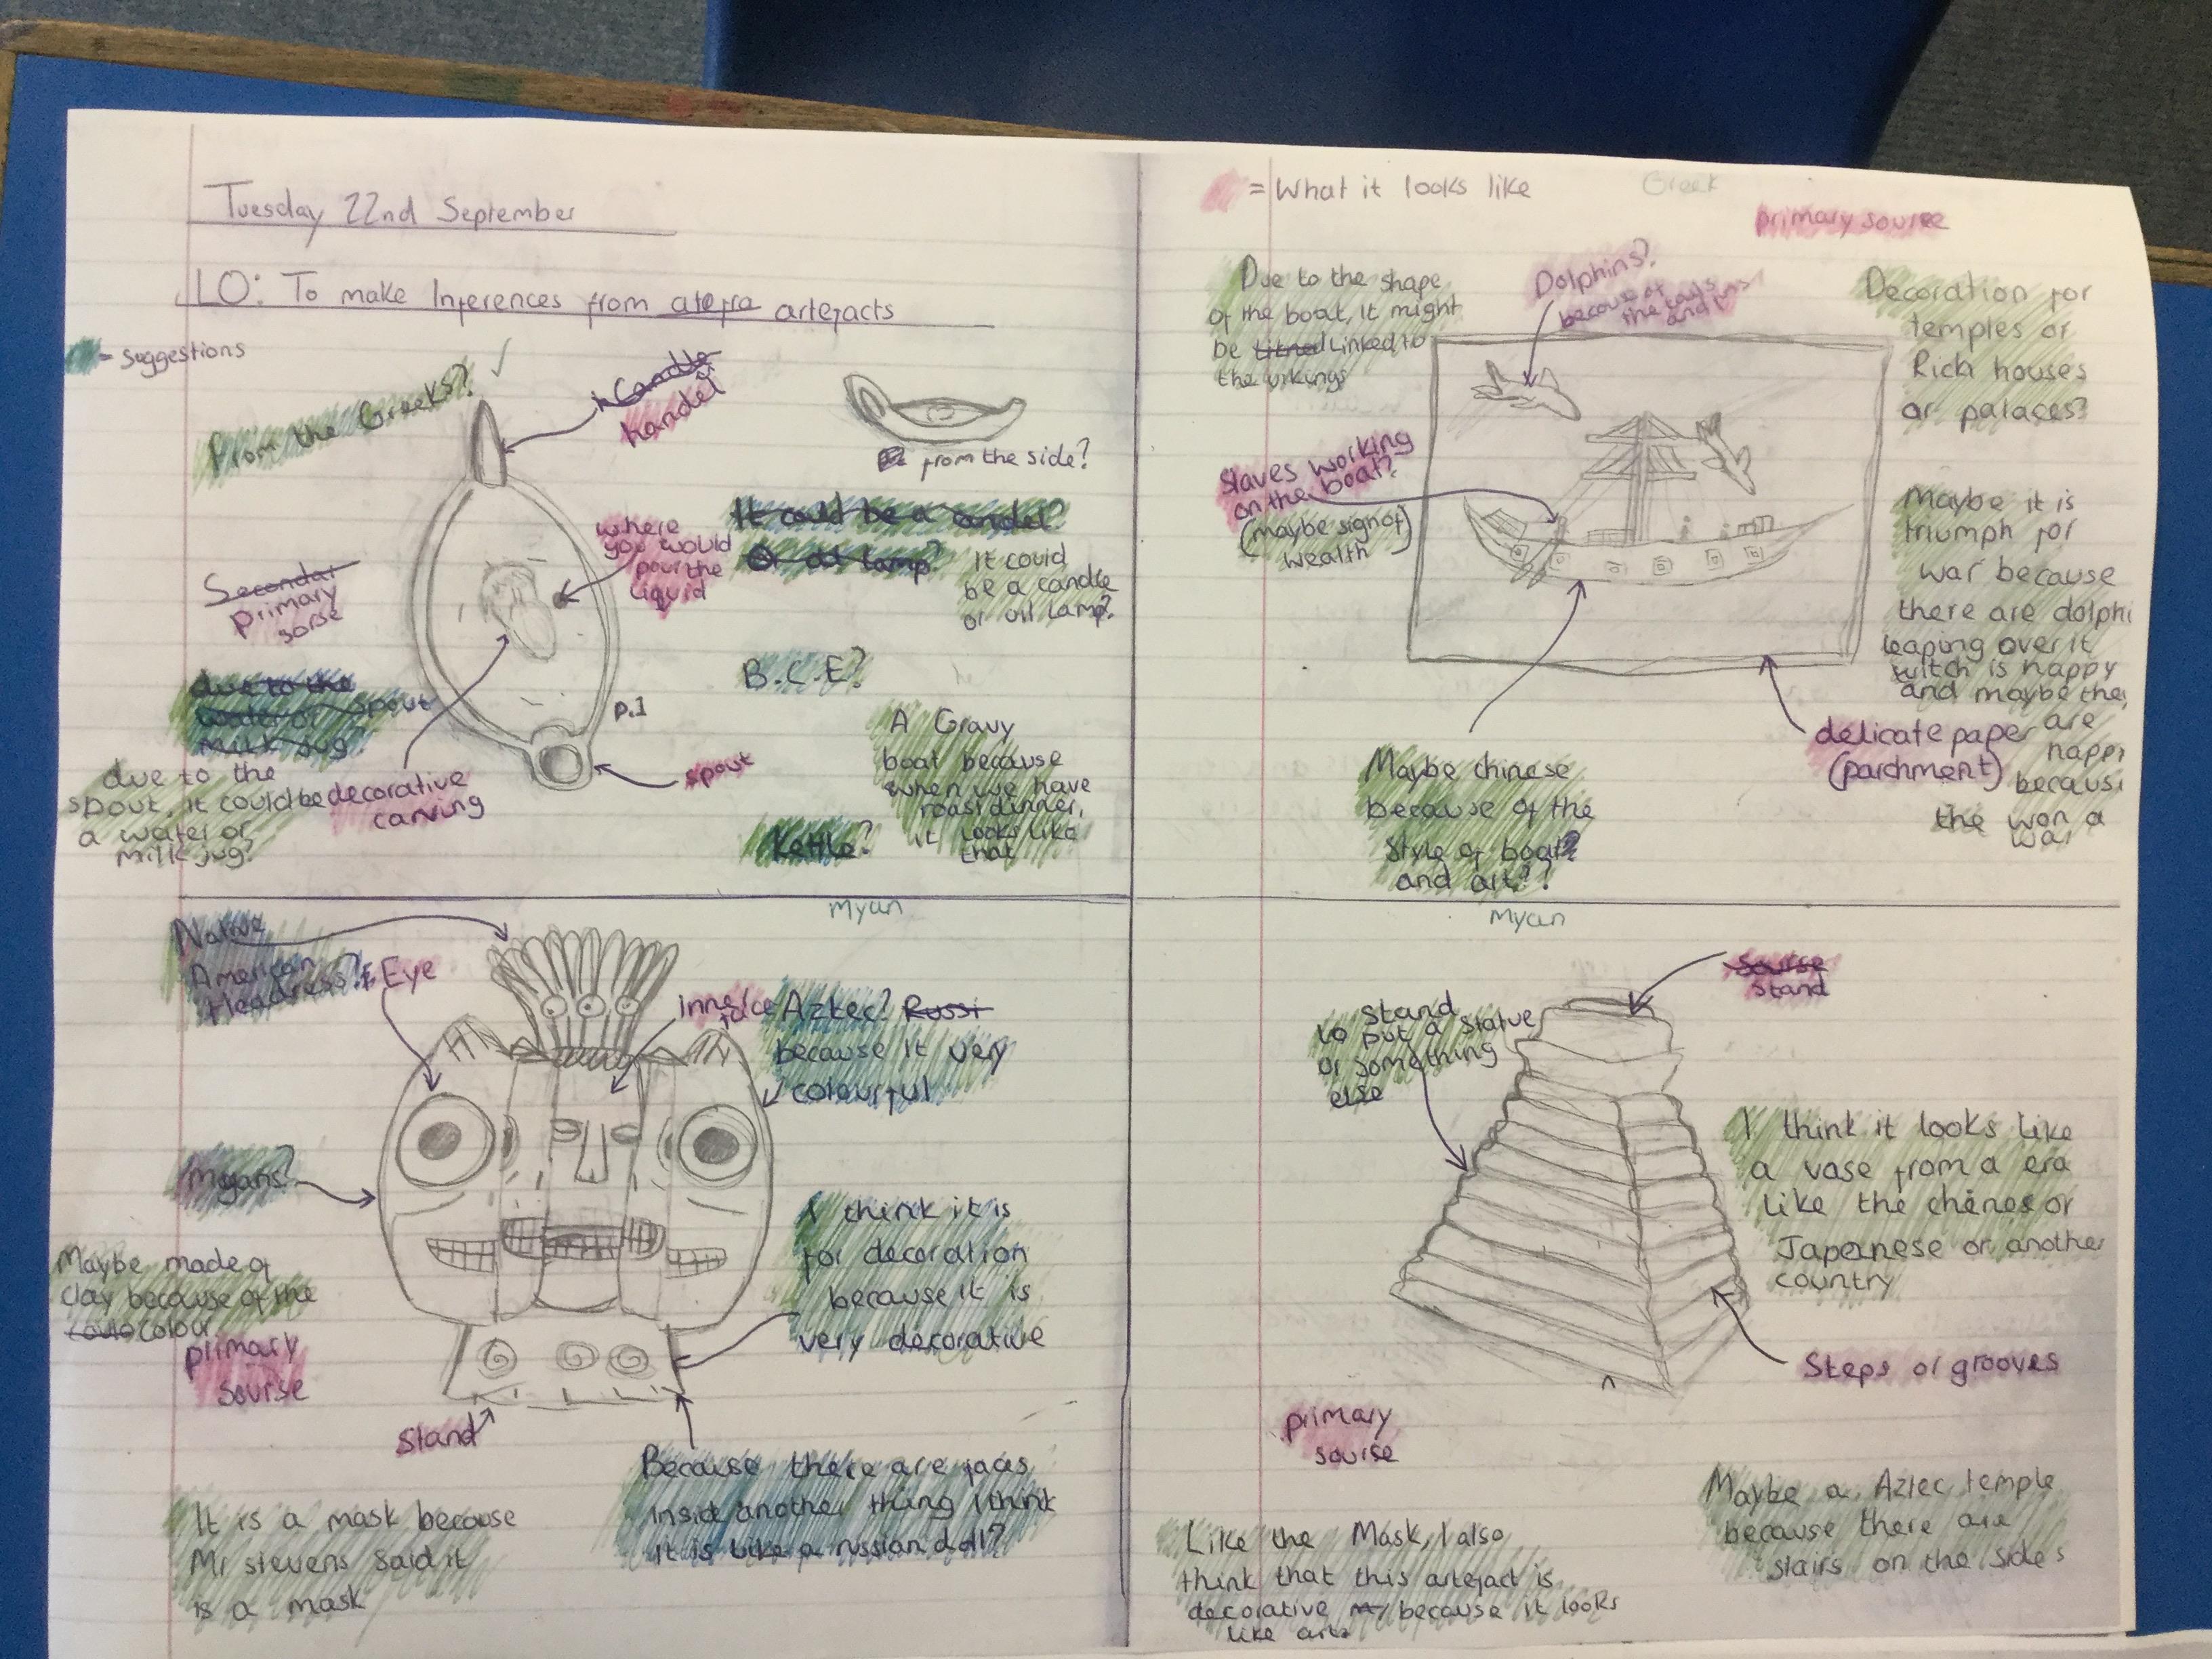 Tuesday 22nd September
LO: To make Inferences from atefra artefacts
= Suggestions
From the Greeks?
Candle
handel
from the side?
where
you would
pour the
liquid
It could be a candel?
Or oil lamp?
It could
be a candle
or oil lamp?
Secondar
primary
sorse
B.C.E?
due to the
water or spout
milk jug?
due to the
spout, it could be
a water or
milk jug?
decorative
carving
p.1
spout
A Gravy
boat because
when we have
roast dinner,
it looks like
that
Kettle?
= What it looks like
Greek
primary sourse
Due to the shape
of the boat, it might
be Linked to
the vikings
Dolphins?
because of
the tails
and fins
Decoration for
temples or
Rich houses
or palaces?
Slaves working
on the boat?
(maybe sign of
wealth)
Maybe it is
triumph for
war because
there are dolphi
leaping over it
witch is happy
and maybe the
are
happ
becaus
the won a
war
delicate paper
(parchment)
Maybe chinese
because of the
style of boat?
and art??
Myan
Native
American
Headress?
Eye
inner face
Aztec? Russi
because it very
colourful
Myans?
Maybe made of
clay because of the
colour
primary
sourse
I think it is
for decoration
because it is
very decorative
Stand
Because there are faces
insid another thing I think
it is like a russian doll?
It is a mask because
Mr stevens said it
is a mask
Myan
sourse
stand
stand
to put a statue
or something
else
I think it looks like
a vase from a era
like the chines or
Japeanese or another
country
Steps or grooves
primary
sourse
Maybe a Aztec temple
because there are
stairs on the sides
Like the Mask, I also
think that this artefact is
decorative because it looks
like arts